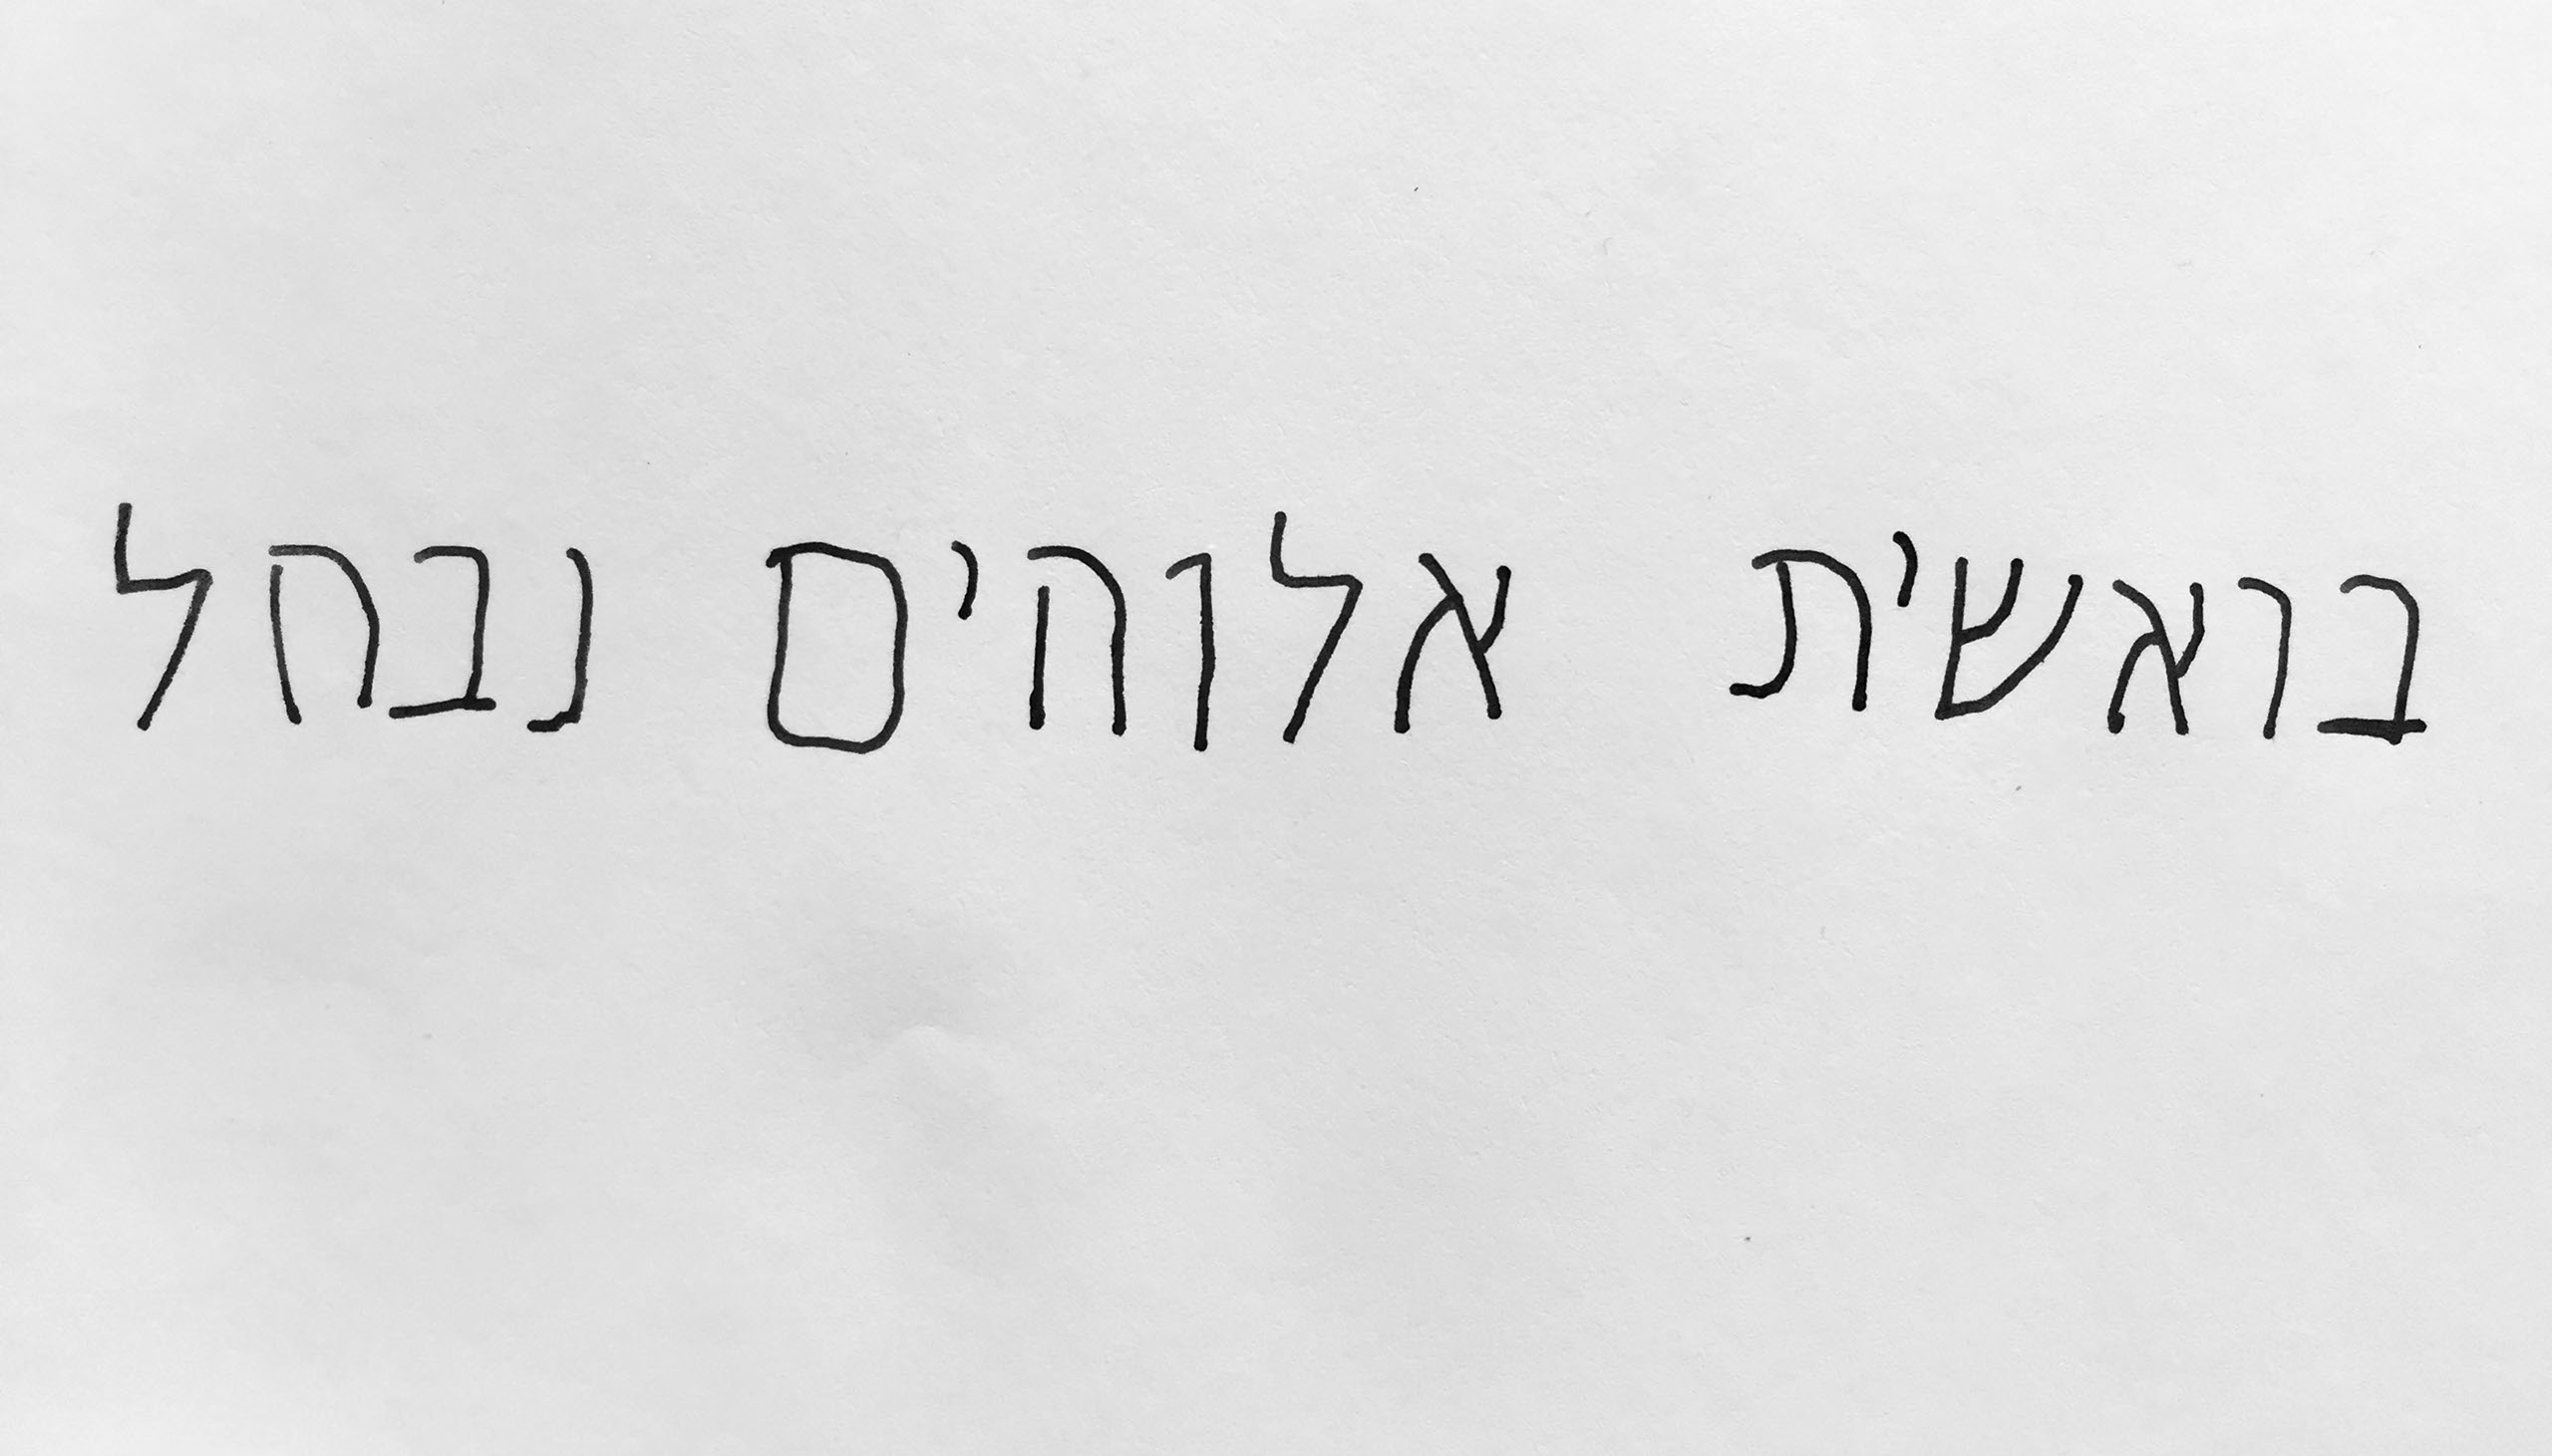 בראשית אלוהים נבהל